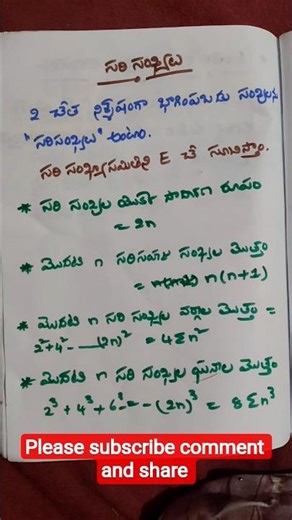 సరి సంఖ్యలు
2 చేత నిశ్శేషంగా భాగింపబడు సంఖ్యలను
"సరిసంఖ్యలు" అంటాం.
సరి సంఖ్యాసమితిని E చే సూచిస్తాం.
* సరి సంఖ్యల యొక్క సాధారణ రూపం
= 2n
* మొదటి n సరిసహజ సంఖ్యల మొత్తం
= n(n+1)
* మొదటి n సరి సంఖ్యల వర్గాల మొత్తం =
2²+4²- --(2n)² = 4Σn²
* మొదటి n సరి సంఖ్యల ఘనాల మొత్తం
2³+4³+6³=--(2n)³ = 8Σn³
Please subscribe comment
and share